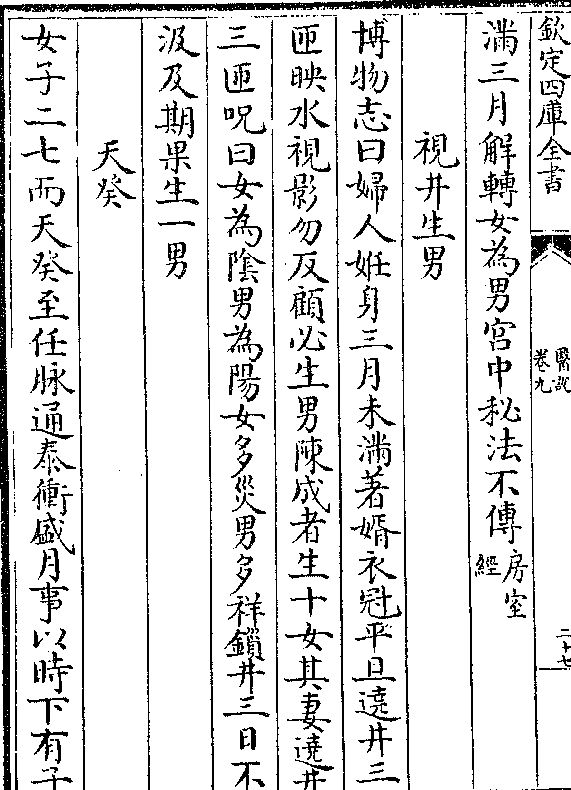 欽定四庫全書
醫說
卷九
二十七
滿三月解轉女為男宮中秘法不傳房室
經
視井生男
博物志曰婦人姙身三月未滿著婿衣冠平旦遶井三
匝映水視影勿反顧必生男陳成者生十女其妻遶井
三匝呪曰女為陰男為陽女多災男多祥鎖井三日不
汲及期果生一男
天癸
女子二七而天癸至任脉通泰衝盛月事以時下有子